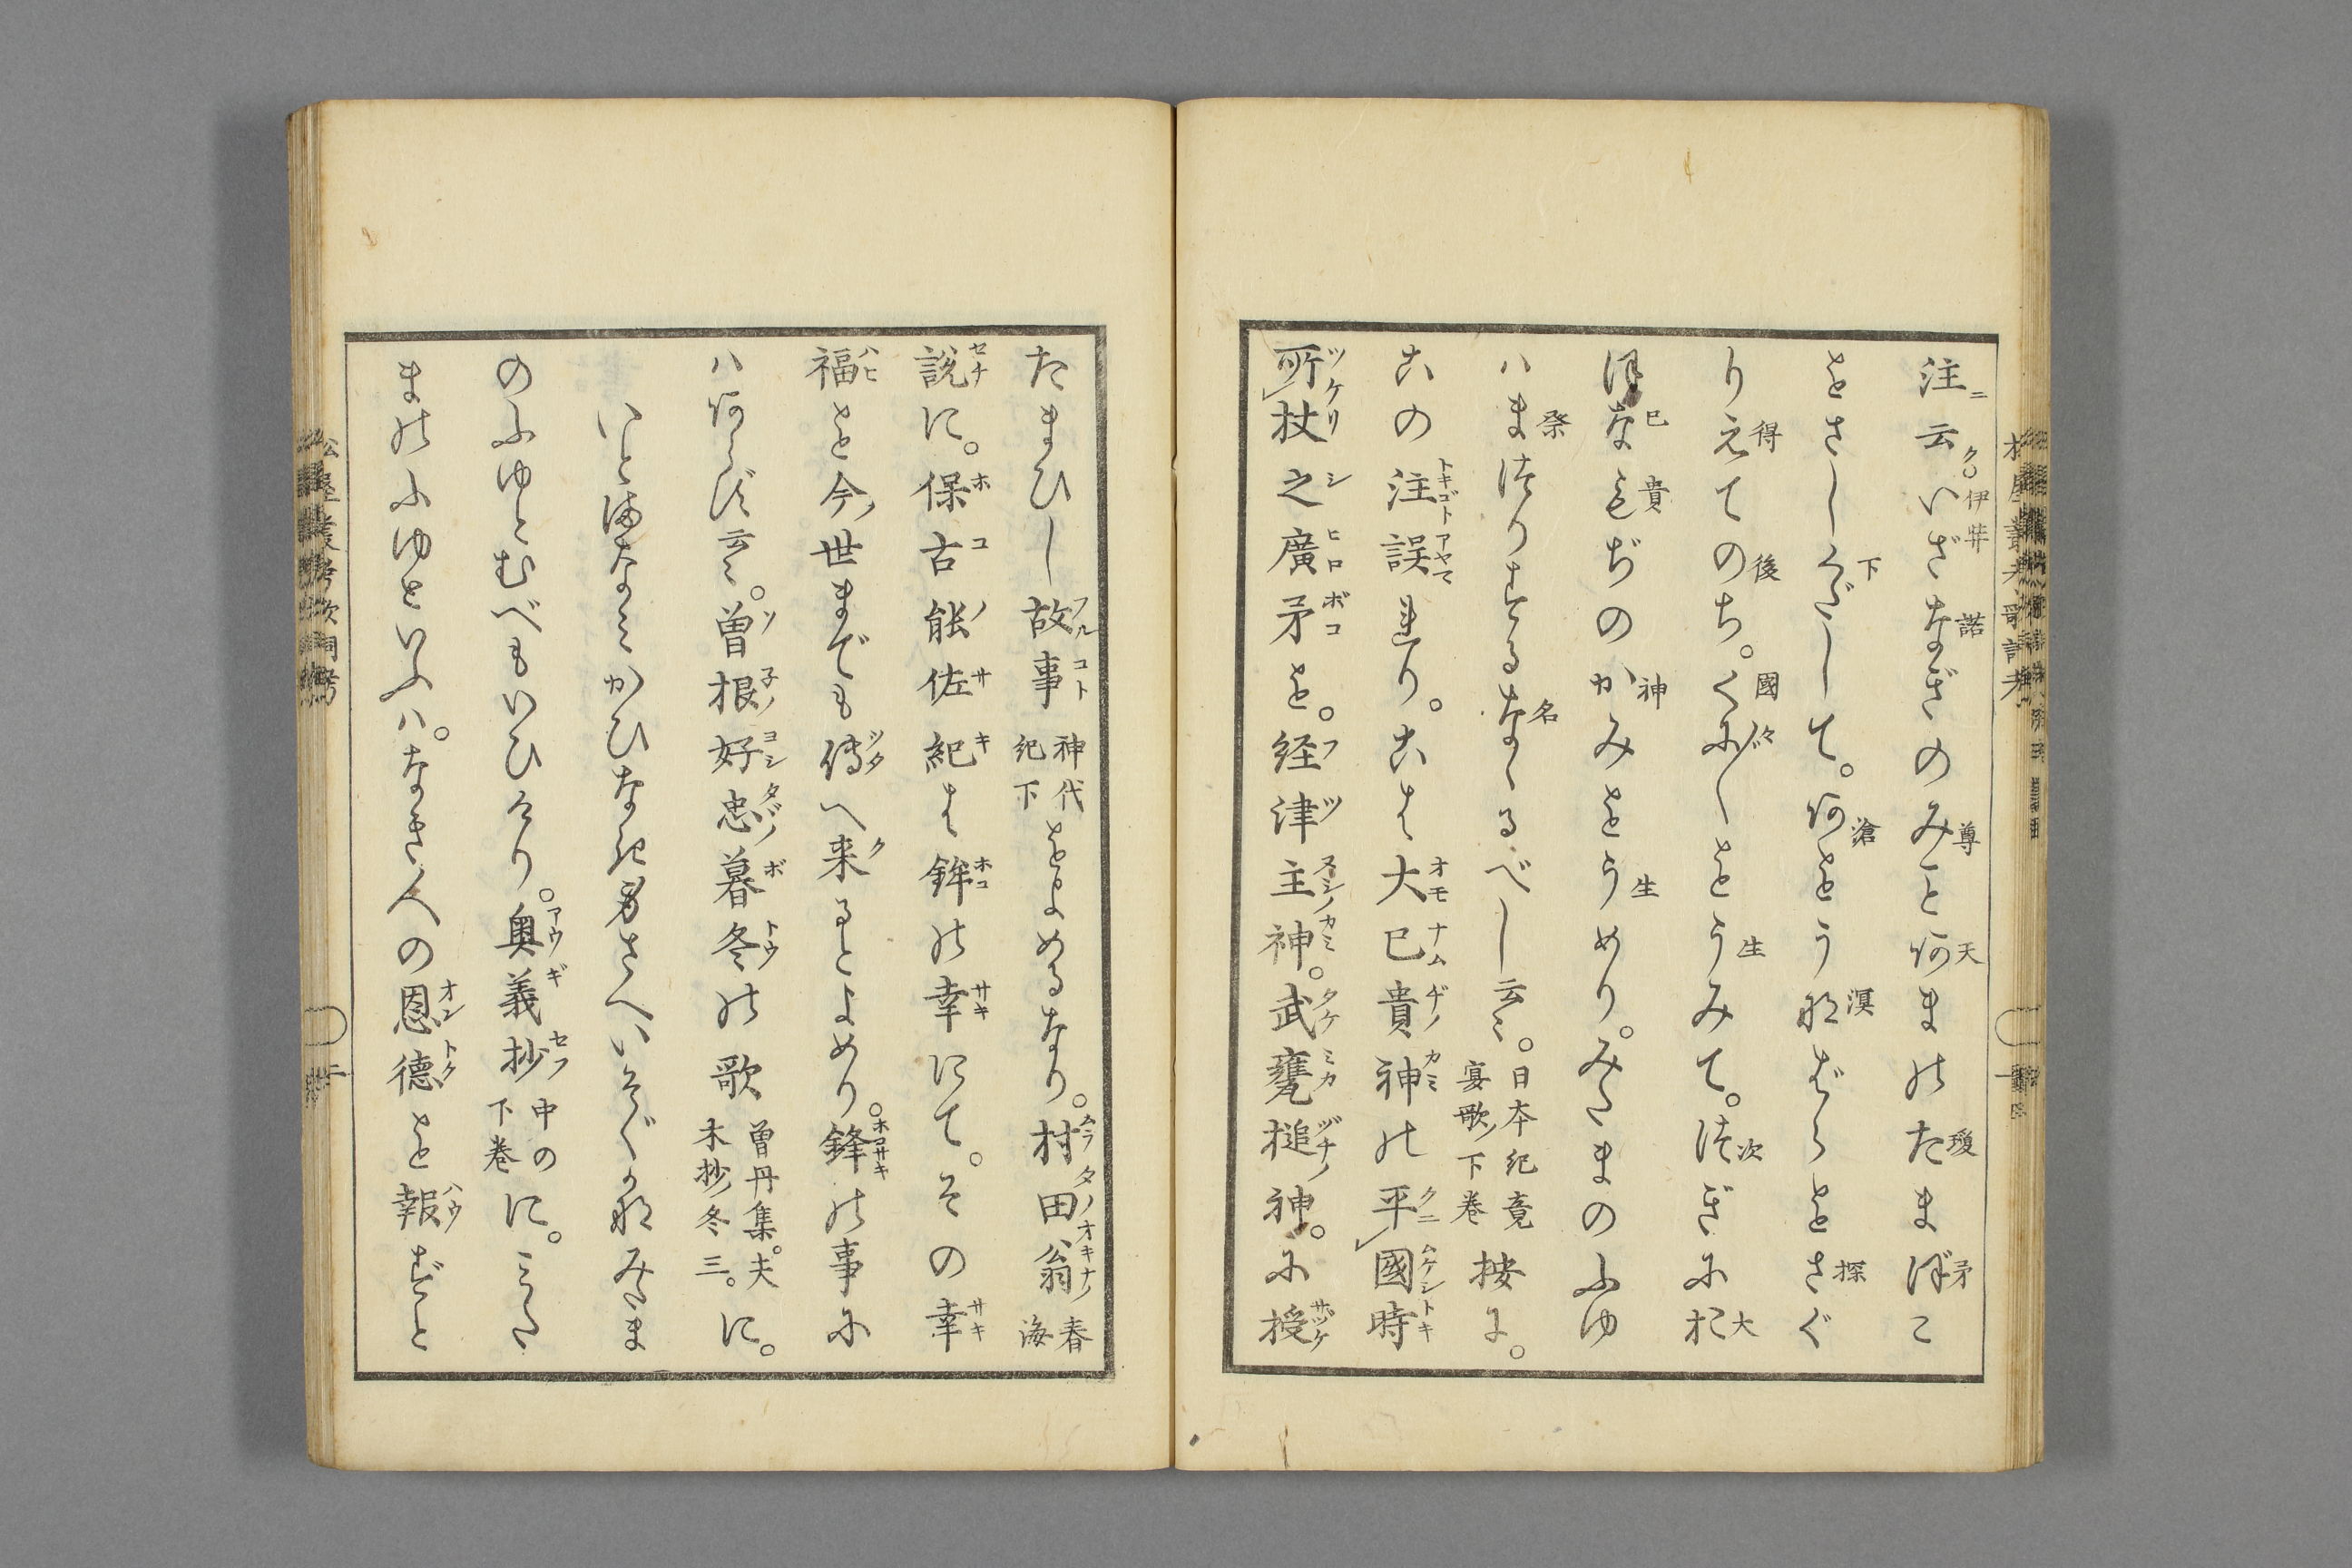 注云いざなぎのみこと阿まのたまぼこ
をさしくだして。阿をうなばらをさぐ
りえてのち。くに〲をうみて。つぎにお
ほなむぢのかみをうめり。みたまのふゆ
ハまつりまするなゝるべし云〻。日本紀竟宴歌下巻按に。
この注誤れり。こは大巳貴神の平國時
所杖之廣矛を。経津主神。武甕槌神。に授
たまひし故事神代紀下をよめるなり。村田翁春海
説に。保古能佐紀は鉾の幸にて。その幸
福を今世までも傳へ来るとよめり。鋒の事に
ハ阿らず云〻。曽根好忠暮冬の歌曽丹集。夫木抄冬三。に。
いとまなみかひなき身さへいそぐかなみたま
のふゆとむべもいひけり。奥義抄中の下巻に。みた
まのふゆといふハ。なき人の恩徳を報ずと